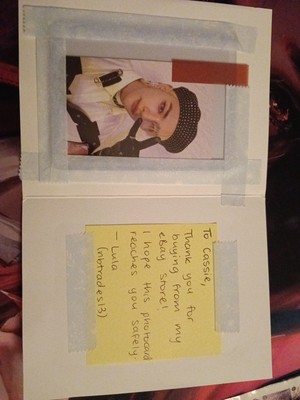 To Cassie,
Thank you for
buying from my
eBay store!
I hope this photocard
reaches you safely.
— Lula
(nbtrades13)